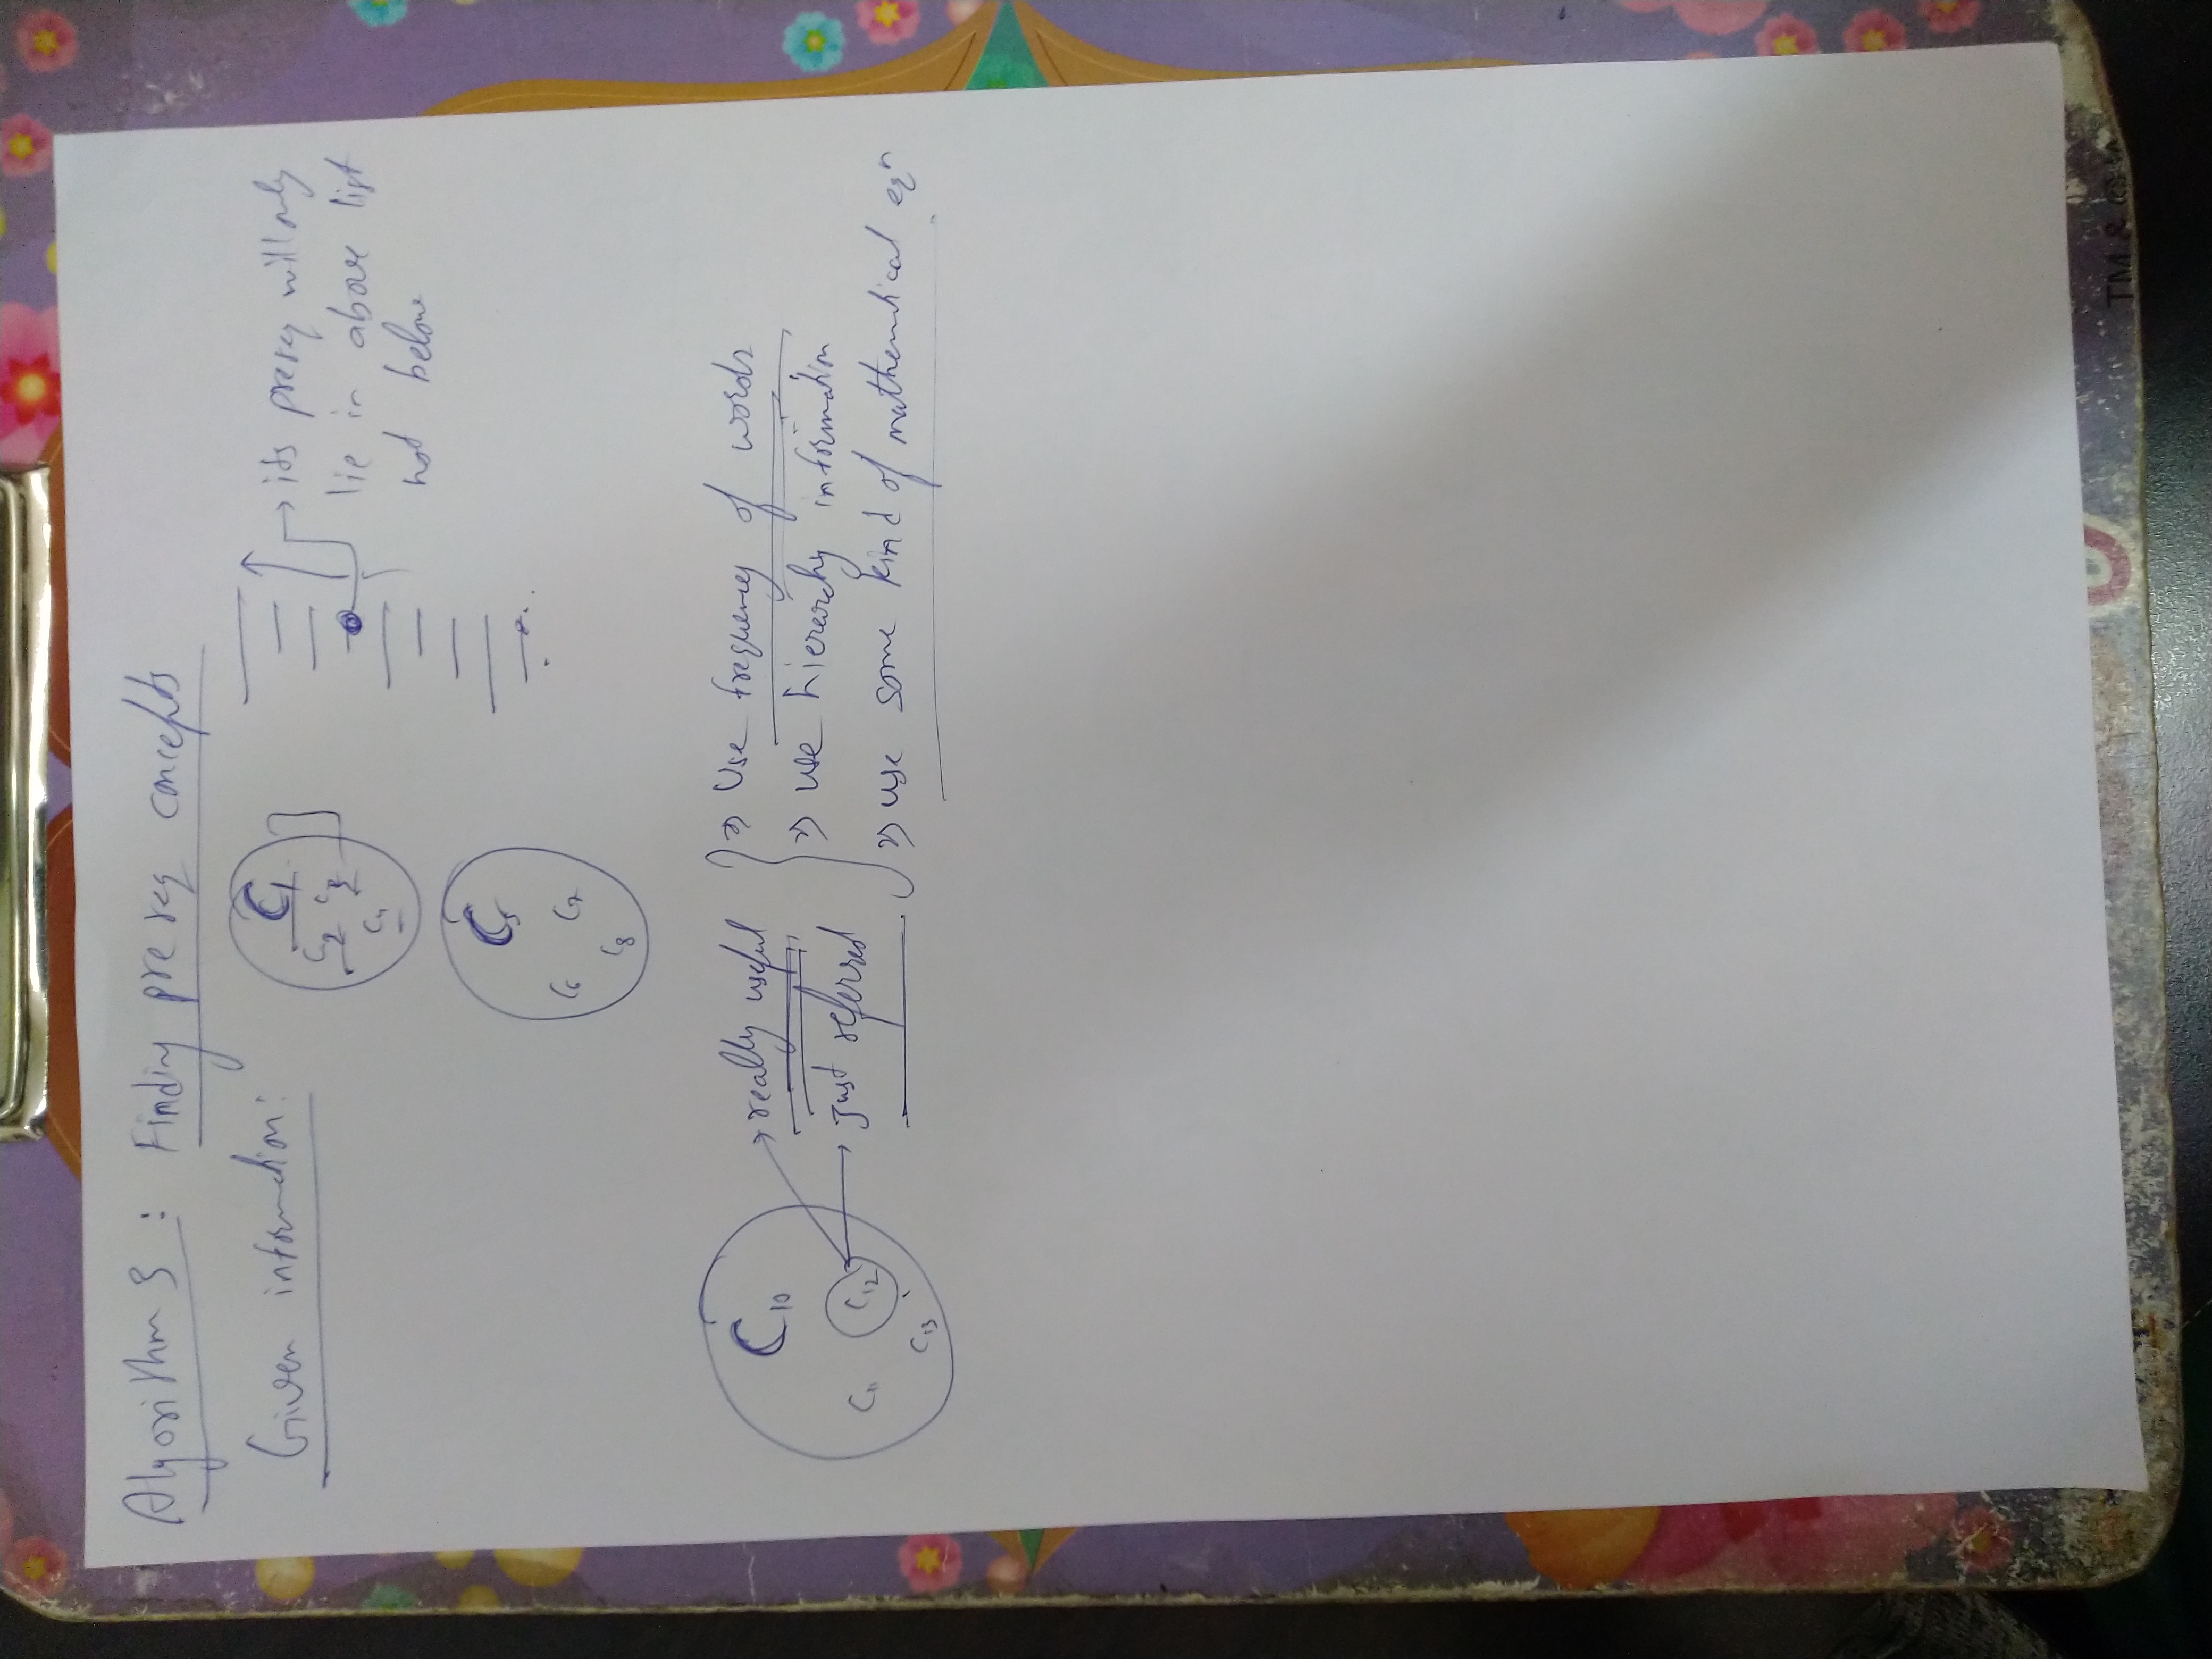 Algorithm 3 : Finding prereq concepts
Given information:
C1
C2 C3
C4
its prereq will only
lie in above list
not below
C5
C6 C7
C8
C10
C11 C12
C13
really useful
Just referred
⇒ Use frequency of words
⇒ use hierarchy information
⇒ use some kind of mathematical eqn
TM &